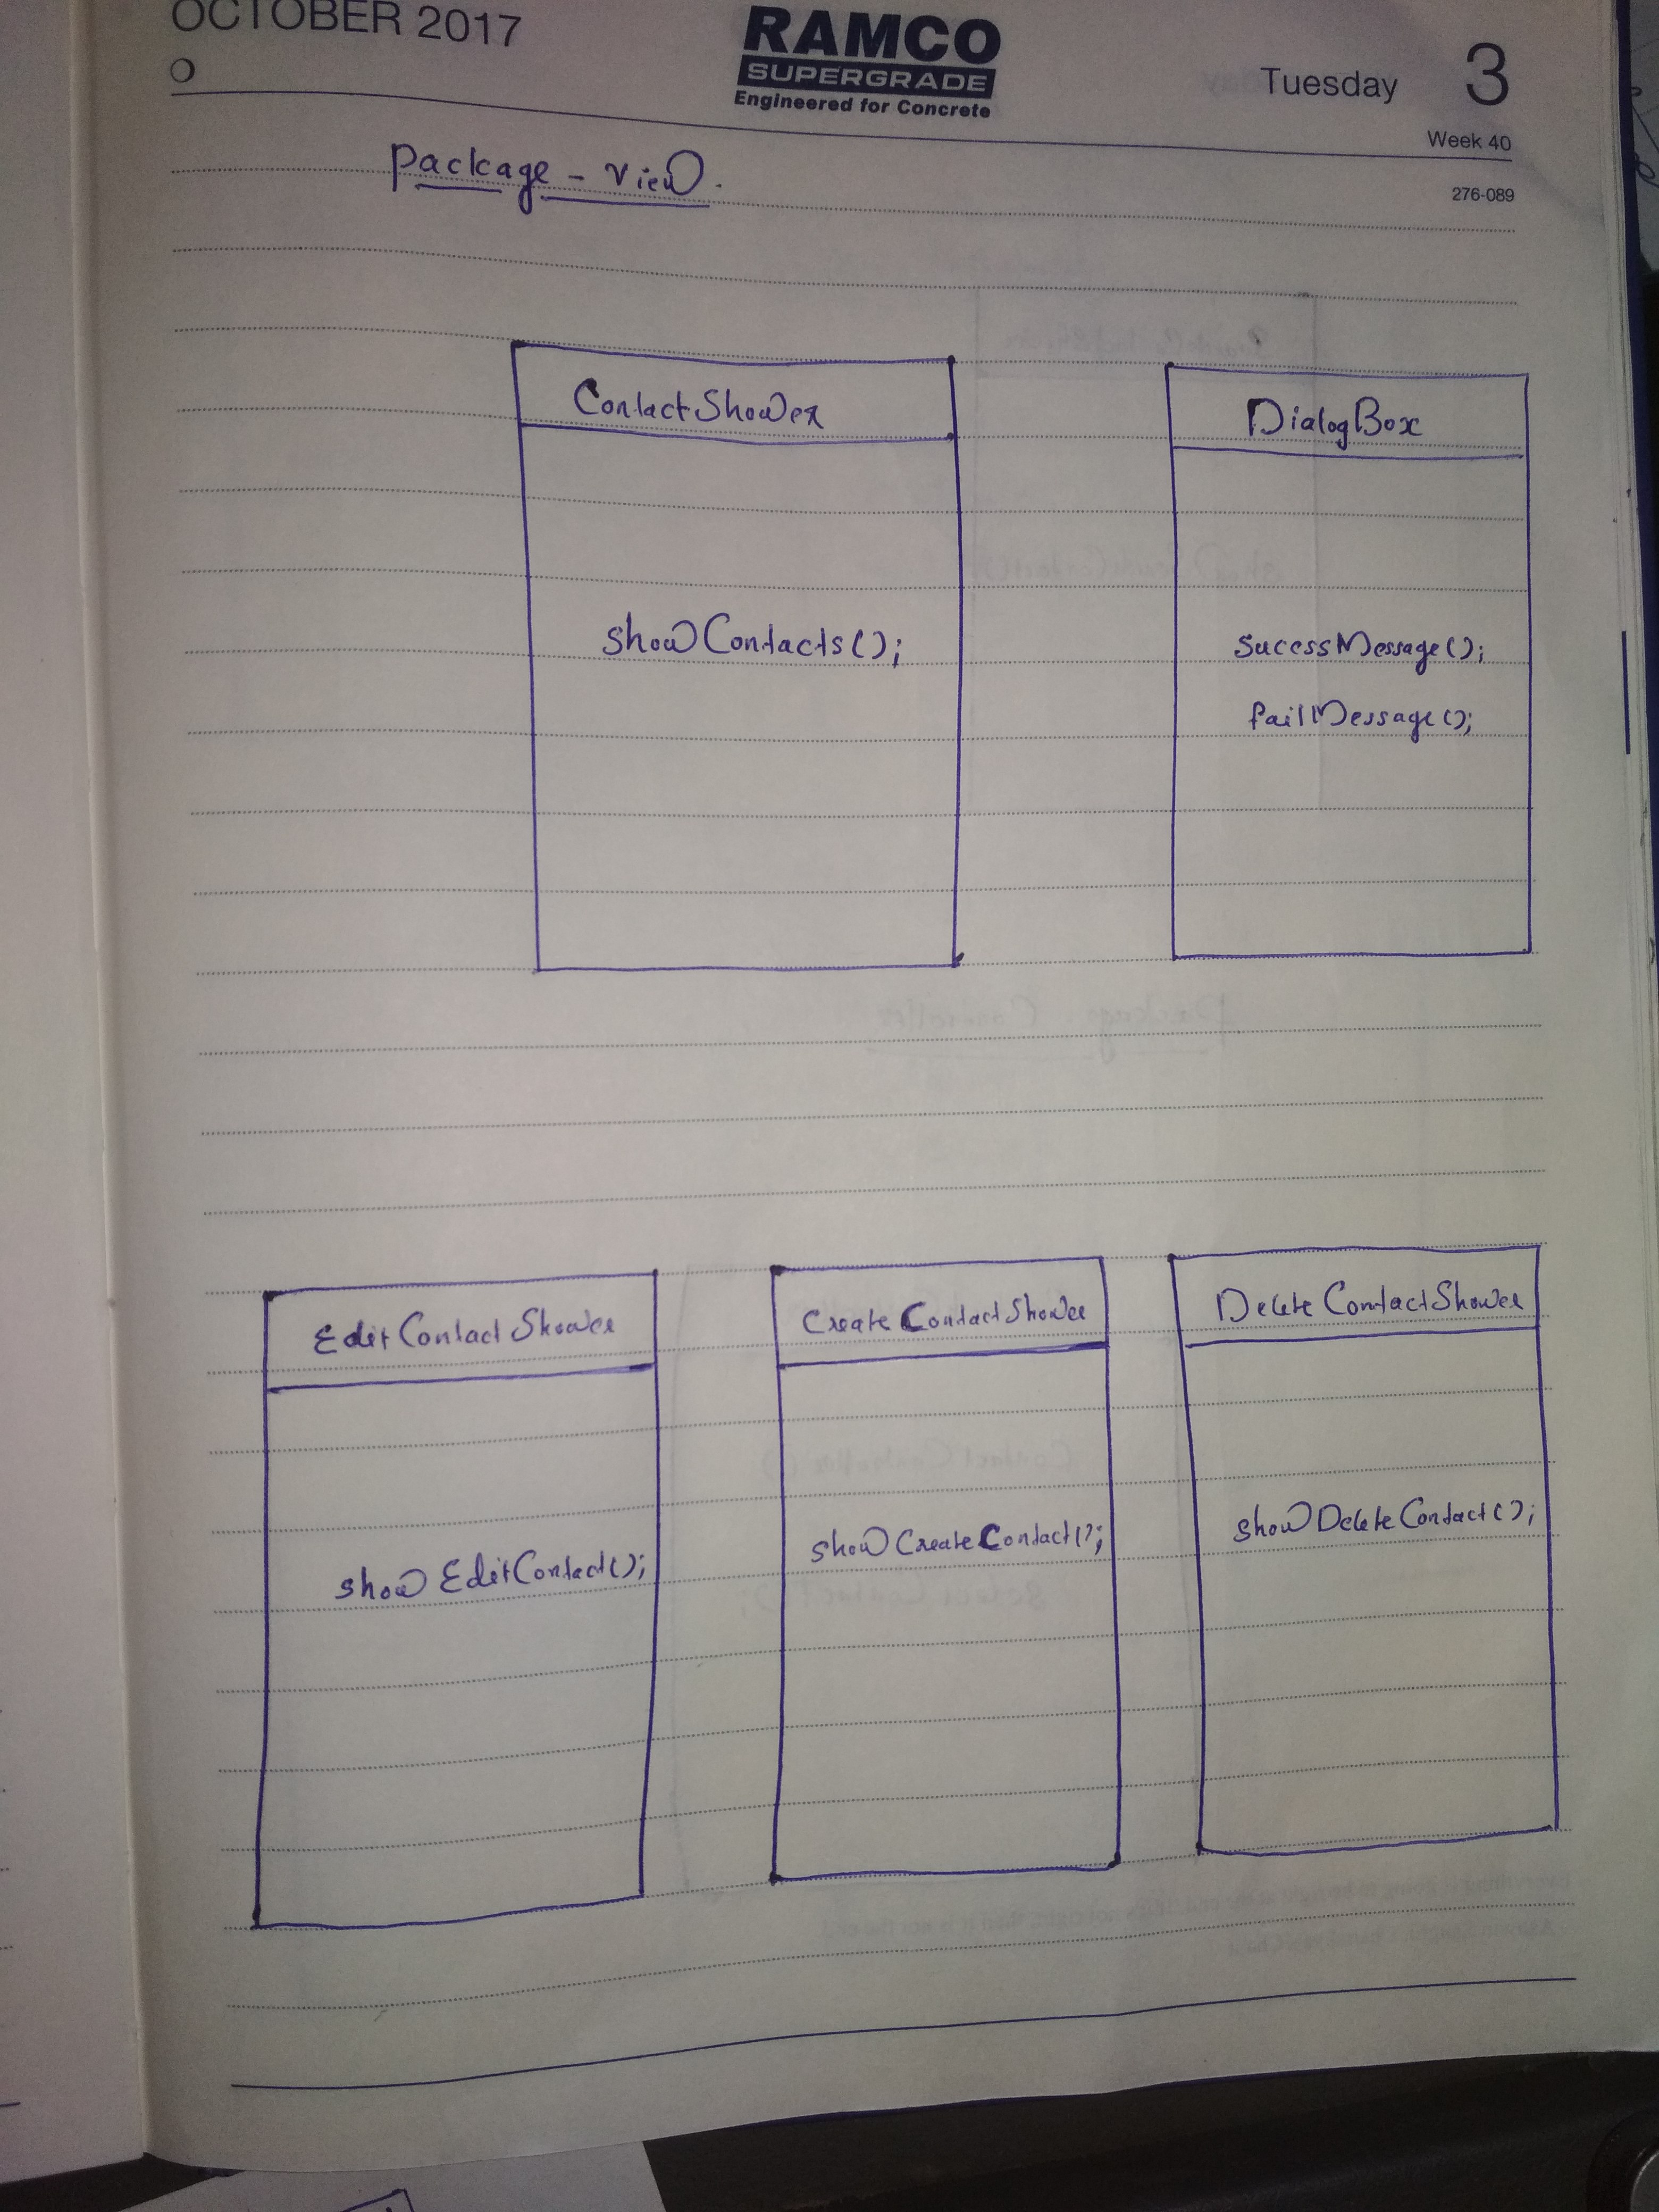 OCTOBER 2017
RAMCO
SUPERGRADE
Engineered for Concrete
Tuesday 3
Week 40
276-089
Package - View.
ContactShower
showContacts();
DialogBox
sucessMessage();
failMessage();
EditContactShower
showEditContact();
CreateContactShower
showCreateContact();
DeleteContactShower
showDeleteContact();